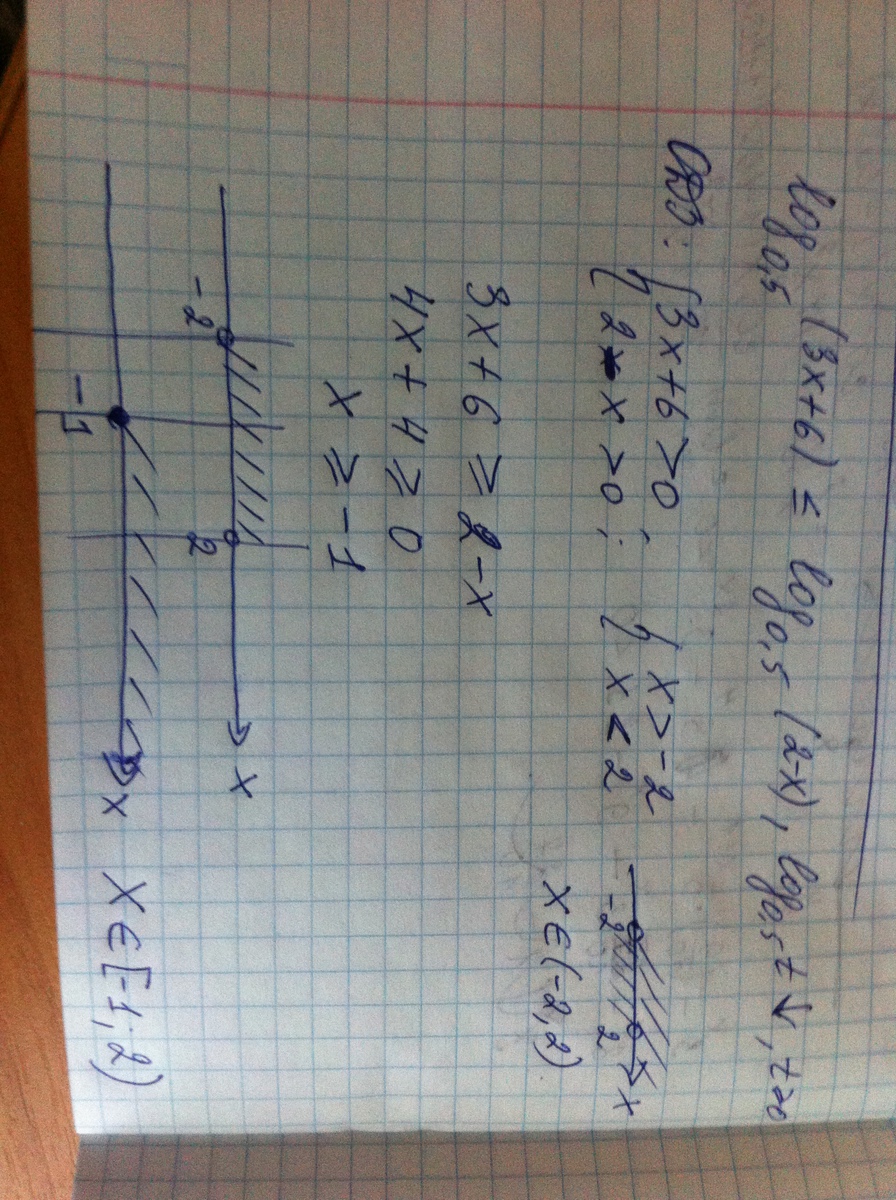 log₀,₅ (3x+6) ≤ log₀,₅ (2-x), log₀,₅ t ↓, t>0
ОДЗ: { 3x+6>0 { x>-2
{ 2-x>0; { x<2
-2 2 x
x∈(-2,2)
3x+6 ≥ 2-x
4x+4 ≥ 0
x ≥ -1
-2 2 x
-1 x
x∈[-1;2)